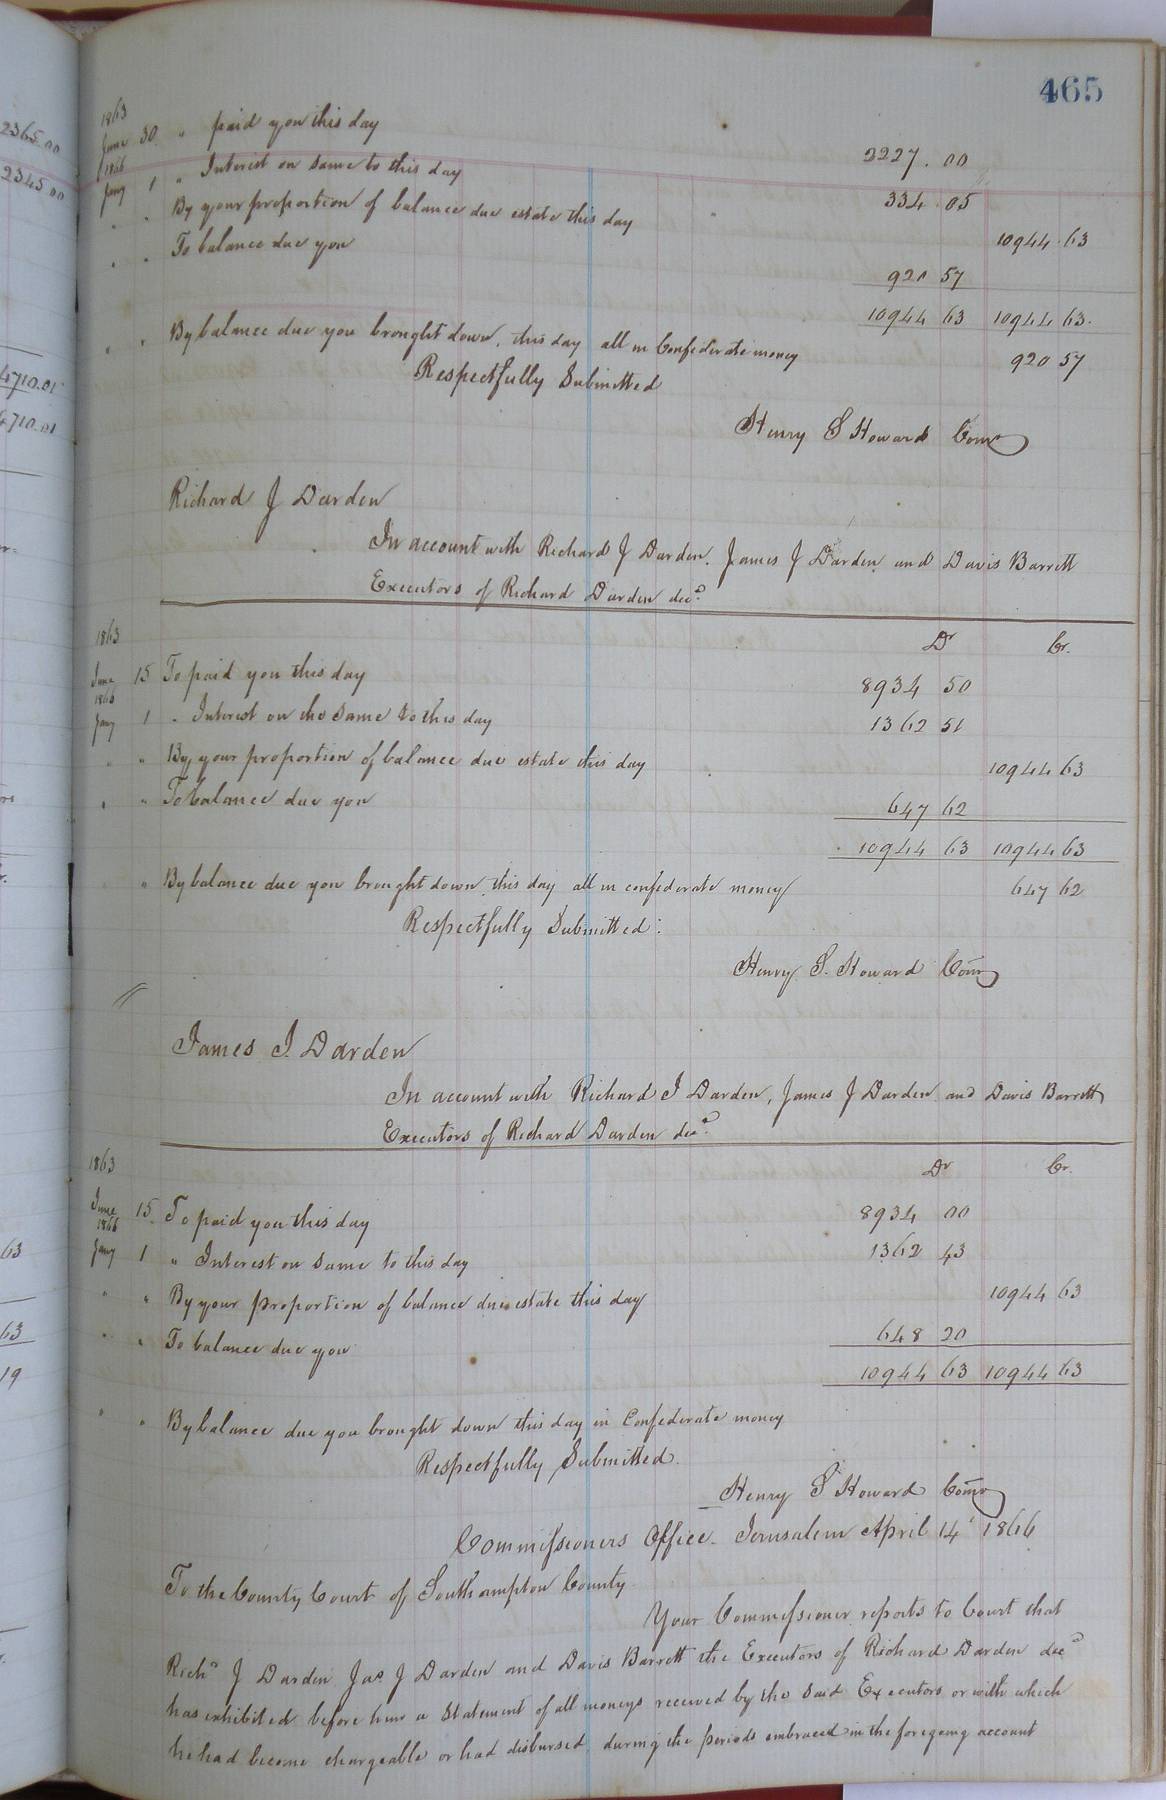 465
2365.00
2345 00
4710.01
4710.01
63
63
19
1863
June 30 " paid you this day 2227.00
1866
Jany 1 " Interest on same to this day 334 05
" " By your proportion of balance due estate this day 10944.63
" " To balance due you 920 57
10944 63 10944 63.
" " By balance due you brought down, this day all in Confederate money 920 57
Respectfully Submitted
Henry S Howard Comr
Richard J Darden
In account with Richard J Darden, James J Darden and Davis Barrett
Executors of Richard Darden decd
1863 Dr Cr.
June 15 To paid you this day 8934 50
1866
Jany 1 " Interest on the same to this day 1362 51
" " By your proportion of balance due estate this day 10944 63
" " To balance due you 647 62
10944 63 10944 63
" By balance due you brought down this day all in confederate money 647 62
Respectfully Submitted:
Henry S. Howard Comr
James J. Darden
In account with Richard J Darden, James J Darden and Davis Barrett
Executors of Richard Darden decd
1863 Dr Cr.
June 15 To paid you this day 8934 00
1866
Jany 1 " Interest on same to this day 1362 43
" " By your proportion of balance due estate this day 10944 63
" " To balance due you 648 20
10944 63 10944 63
" " By balance due you brought down this day in Confederate money
Respectfully Submitted.
Henry S Howard Comr
Commissioners Office. Jerusalem April 14 1866
To the County Court of Southampton County
Your Commissioner reports to Court that
Richd J Darden Jas J Darden and Davis Barrett the Executors of Richard Darden decd
has exhibited before him a Statement of all moneys received by the said Executors or with which
he had become chargeable or had disbursed during the periods embraced in the foregoing account